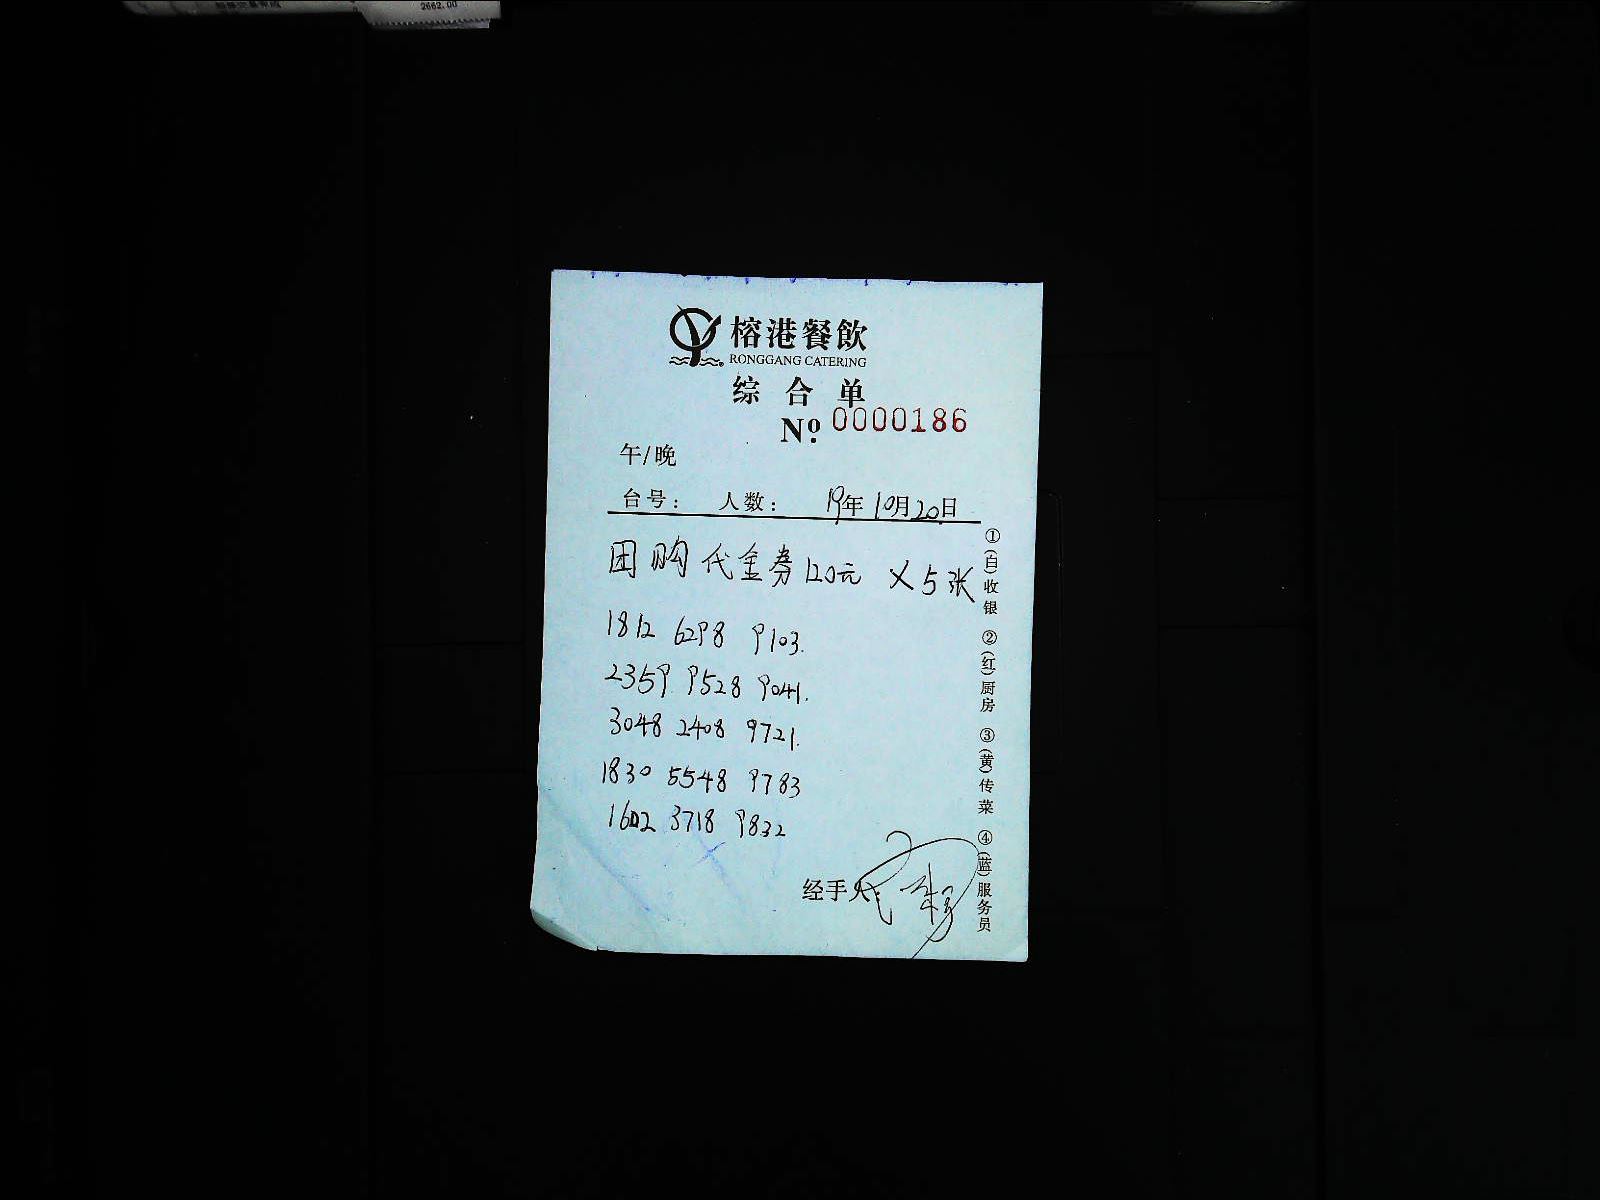 2662.00
榕港餐飲
RONGGANG CATERING
综合单
Nº: 0000186
午/晚
台号: 人数: 19年10月20日
团购代金券120元 ×5张
1812 6298 9103.
2359 9528 9041.
3048 2408 9721.
1830 5548 9783
1602 3718 9832
经手人:
①(白)收银 ②(红)厨房 ③(黄)传菜 ④(蓝)服务员